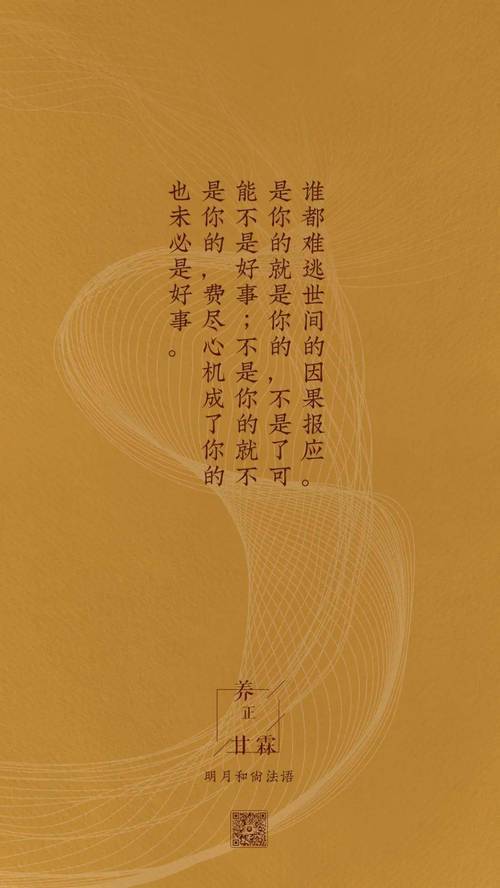 谁都难逃世间的因果报应。
是你的就是你的，不是了可
能不是好事；不是你的就不
是你的，费尽心机成了你的
也未必是好事。
养
正
甘霖
明月和尚法语